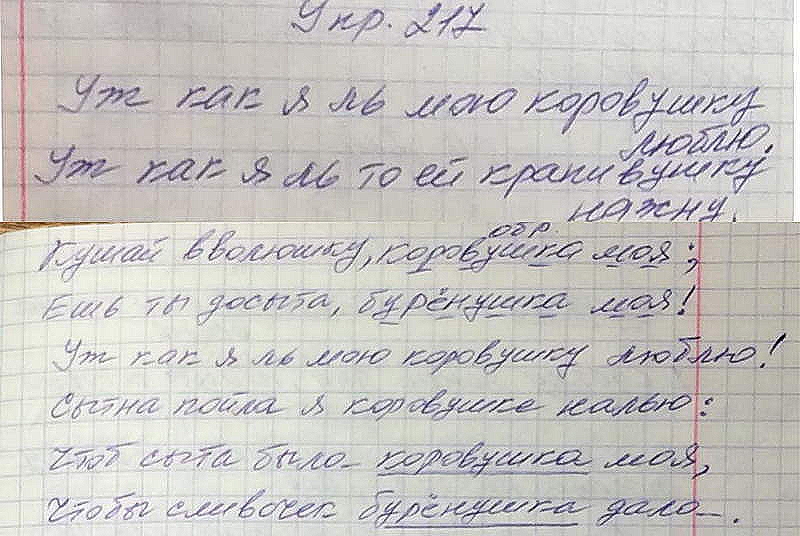 Упр. 217
Уж как я ль мою коровушку
люблю.
Уж как я ль то ей крапивушку
нажну.
обр.
Кушай вволюшку, коровушка моя;
Ешь ты досыта, бурёнушка моя!
Уж как я ль мою коровушку люблю!
Сытна пойла я коровушке налью:
Чтоб сыта была коровушка моя,
Чтобы сливочек бурёнушка дала.